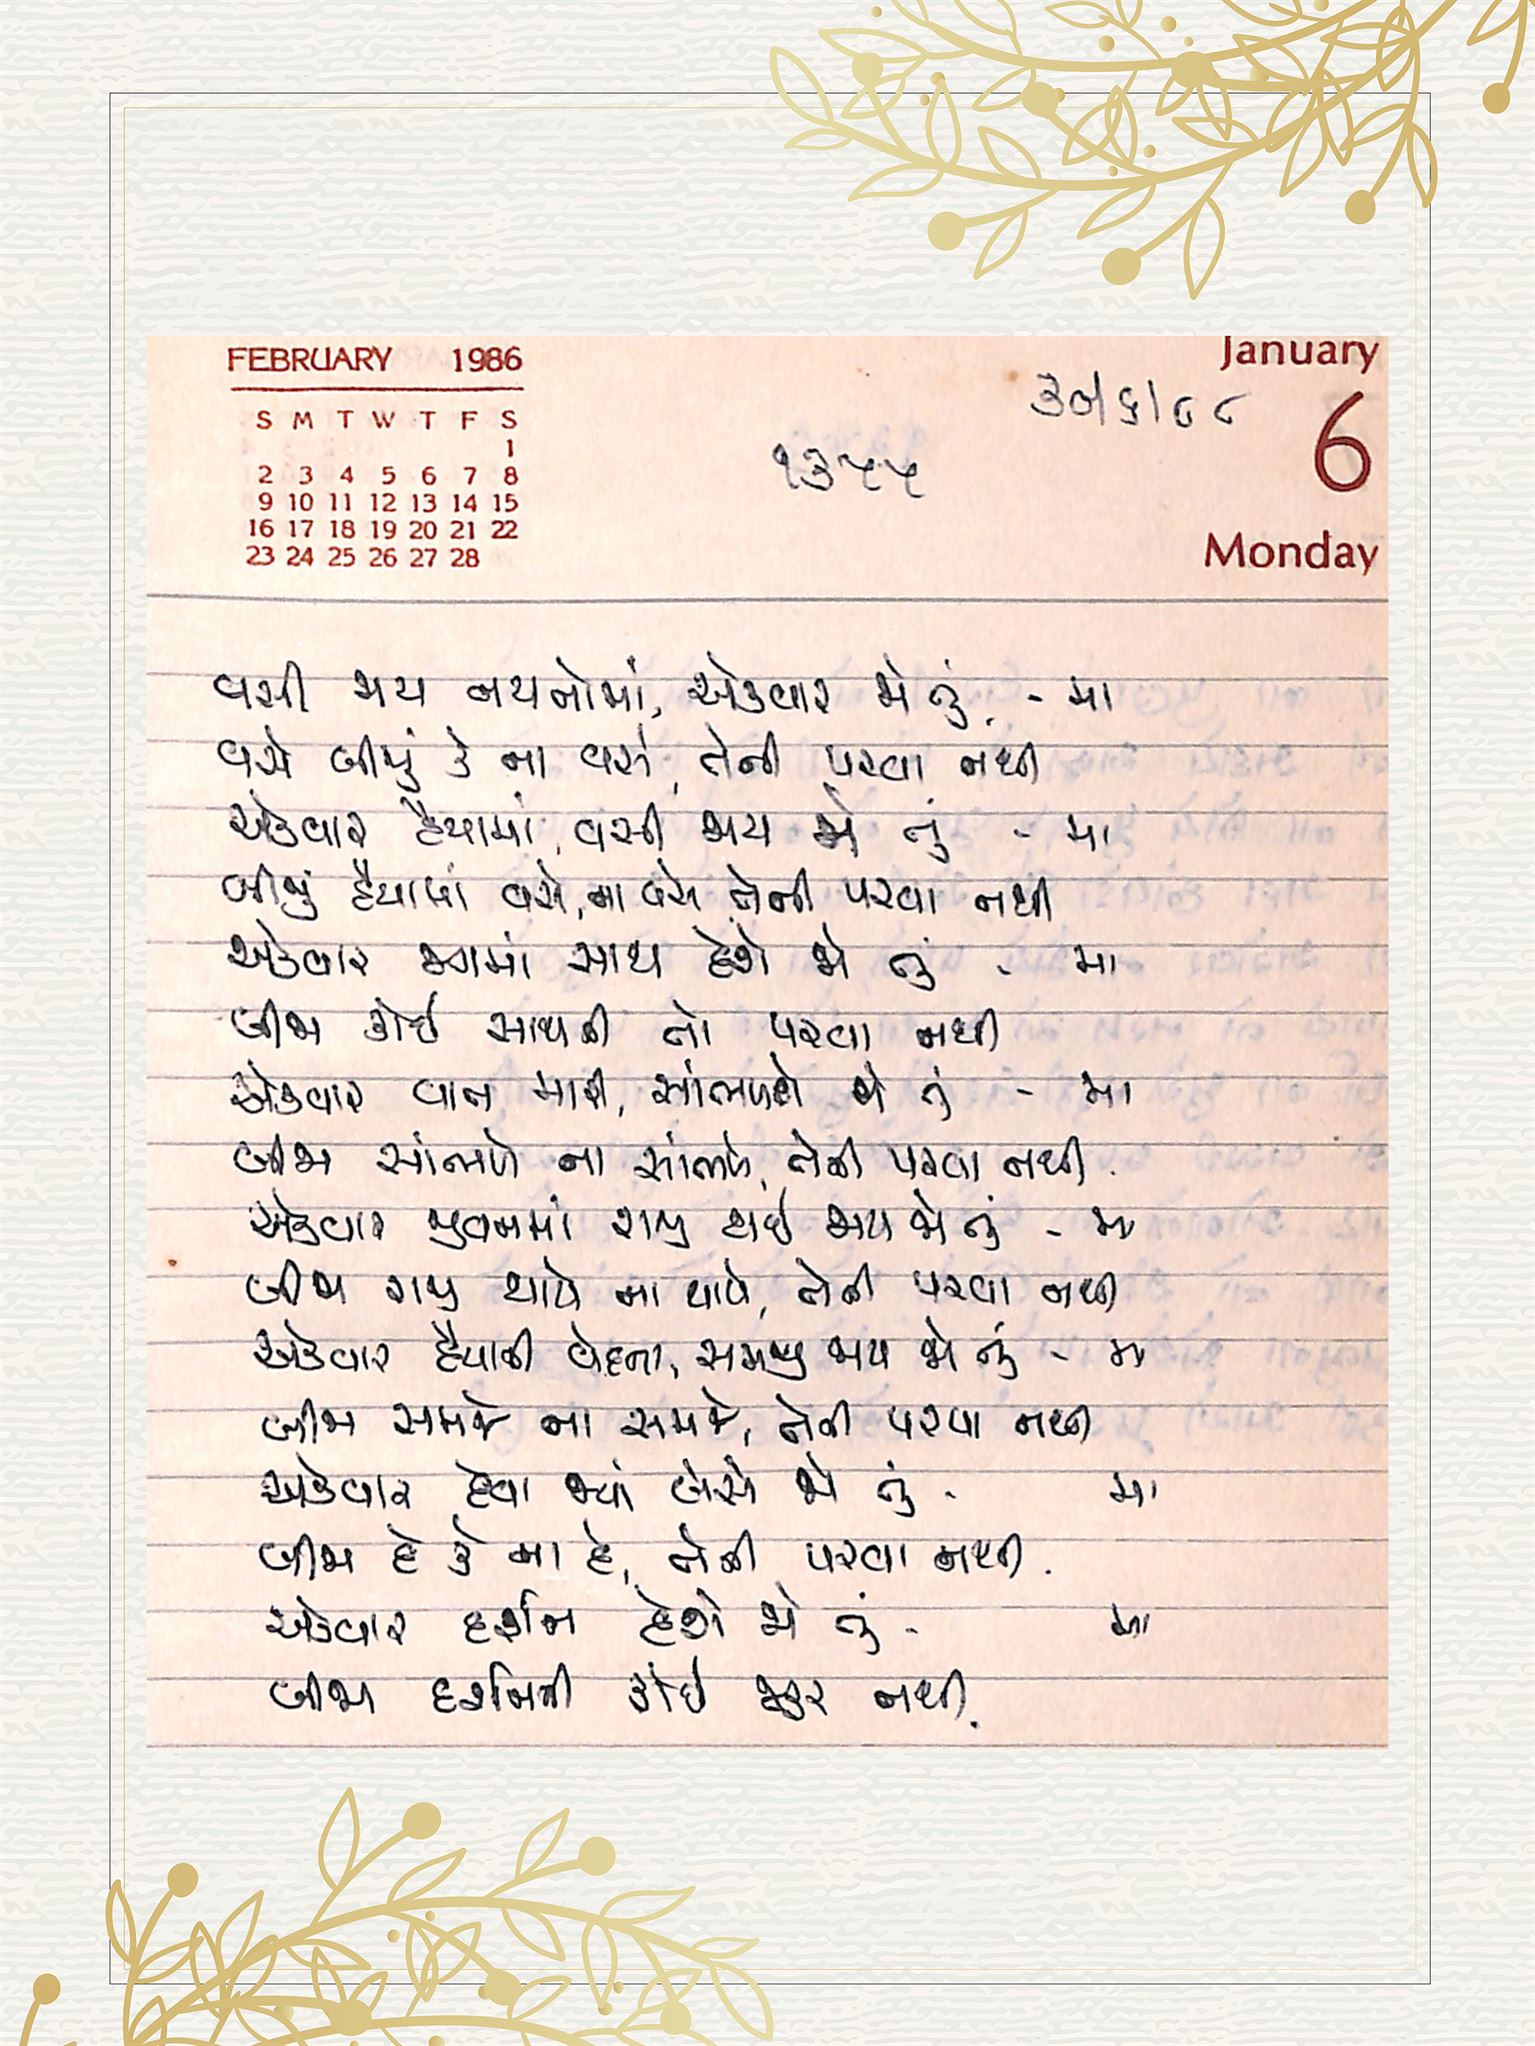 FEBRUARY 1986
S M T W T F S
1
2 3 4 5 6 7 8
9 10 11 12 13 14 15
16 17 18 19 20 21 22
23 24 25 26 27 28
January
6
Monday
૩૦/૬/૮૮
૧૩૫૫
વસી જાય નયનોમાં, એકવાર જો તું - મા
વસે બીજું કે ના વસે, તેની પરવા નથી
એકવાર હૈયામાં, વસી જાય જો તું - મા
બીજું હૈયામાં વસે, ના વસે તેની પરવા નથી
એકવાર જગમાં સાથ દેશે જો તું - મા
બીજા કોઈ સાથની તો પરવા નથી
એકવાર વાત મારી, સાંભળશે જો તું - મા
બીજા સાંભળે ના સાંભળે, તેની પરવા નથી.
એકવાર જીવનમાં રાજી થઈ જાય જો તું - મા
બીજા રાજી થાયે ના થાયે, તેની પરવા નથી
એકવાર હૈયાની વેદના, સમજી જાય જો તું - મા
બીજા સમજે ના સમજે, તેની પરવા નથી
એકવાર દેવા જ્યાં બેસે જો તું - મા
બીજા દે કે ના દે, તેની પરવા નથી.
એકવાર દર્શન દેશે જો તું - મા
બીજા દર્શનની કોઈ જરૂર નથી.